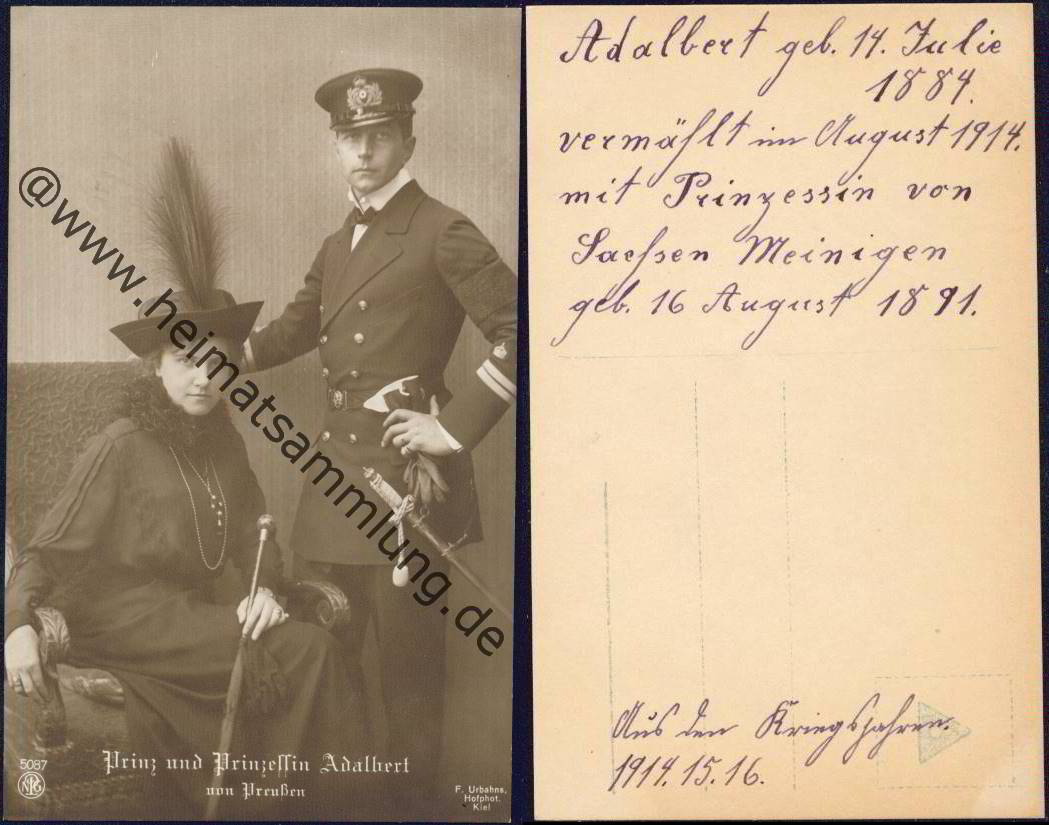 @www.heimatsammlung.de
5087
NPG
Prinz und Prinzessin Adalbert
von Preußen
F. Urbahns,
Hofphot.
Kiel
Adalbert geb. 14. Julie
1884.
vermählt im August 1914.
mit Prinzessin von
Sachsen Meinigen
geb. 16 August 1891.
Aus den Kriegsjahren.
1914. 15. 16.